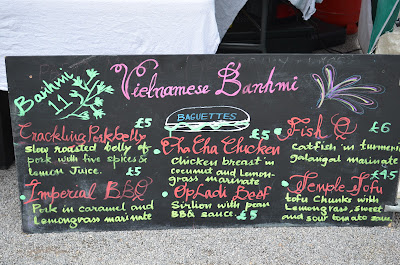 Vietnamese Banhmi
Banhmi
11
BAGUETTES
Crackling Porkbelly £5
Slow roasted belly of
pork with five spices &
lemon Juice.
Imperial BBQ £5
Pork in caramel and
Lemongrass marinate
Cha Cha Chicken £5
Chicken breast in
coconut and Lemon-
grass marinate
Op Ladi Beef
Sirlion with pean
BBQ sauce. £5
Fish Q £6
catfish 'n turmeric
galangal marinate
Temple Tofu £4.5
tofu Chunks with
Lemongrass, sweet
and sour tomato sauce